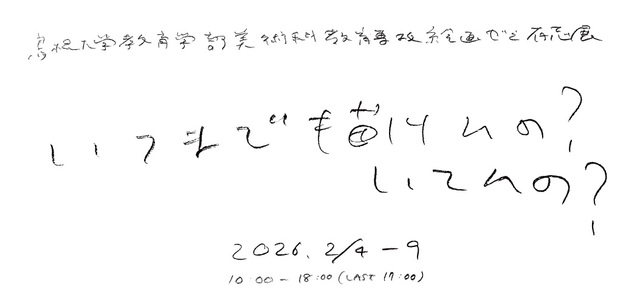 島根大学教育学部美術科教育専攻絵画ゼミ有志展
いつまで描けんの?
いてんの?
2026. 2/4 - 9
10:00 - 18:00 (LAST 17:00)